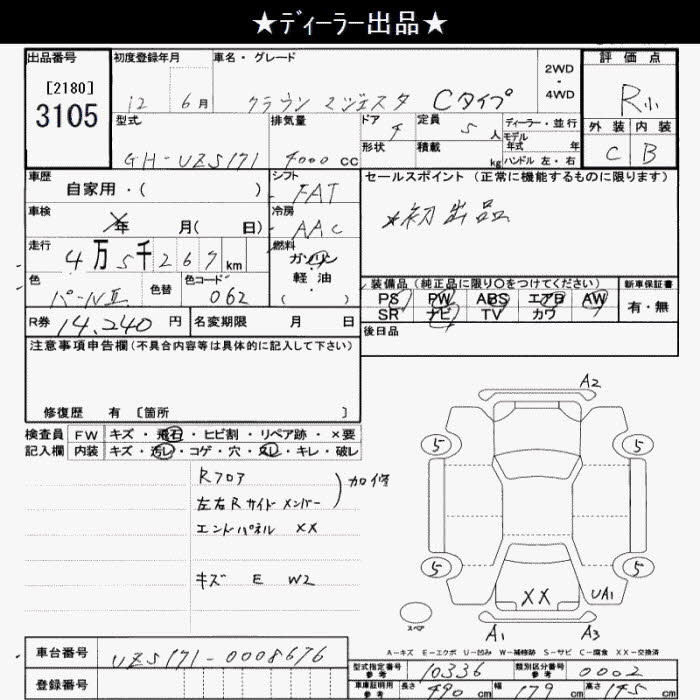 ★ディーラー出品★
出品番号 初度登録年月 車名・グレード 2WD・4WD 評価点
[2180]
3105
12 6月 クラウン マジェスタ Cタイプ R小
型式 排気量 ドア 4 定員 5 人 ディーラー・並行 外装 内装
モデル年式 年
GH-UZS171 4000 cc 形状 積載 kg ハンドル 左・右 C B
車歴 自家用・( ) シフト FAT セールスポイント(正常に機能するものに限ります)
車検 年 月( 日) 冷房 AAC *初出品
走行 4万5千267km 燃料 ガソリン
軽油
( )
色 パールⅡ 色替 色コード 062
装備品(純正品に限り○をつけてください) 新車保証書
PS PW ABS エアB AW 有・無
SR ナビ TV カワ
R券 14,240円 名変期限 月 日 後日品
注意事項申告欄(不具合内容等は具体的に記入して下さい)
修復歴 有 〔箇所 〕
検査員 FW キズ・飛石・ヒビ割・リペア跡・×要
記入欄 内装 キズ・汚レ・コゲ・穴・スレ・キレ・破レ
Rフロア
左右Rサイドメンバー 加修
エンドパネル XX
キズ E W2
A2
5 5
5 5
XX UA1
スペア
A1 A3
A-キズ E-エクボ U-凹み W-補修跡 S-サビ C-腐食 XX-交換済
車台番号 UZS171-0008676
型式指定番号 参考 10336 類別区分番号 参考 0002
登録番号
車庫証明用 参考 長さ 490 cm 幅 179 cm 高さ 145 cm